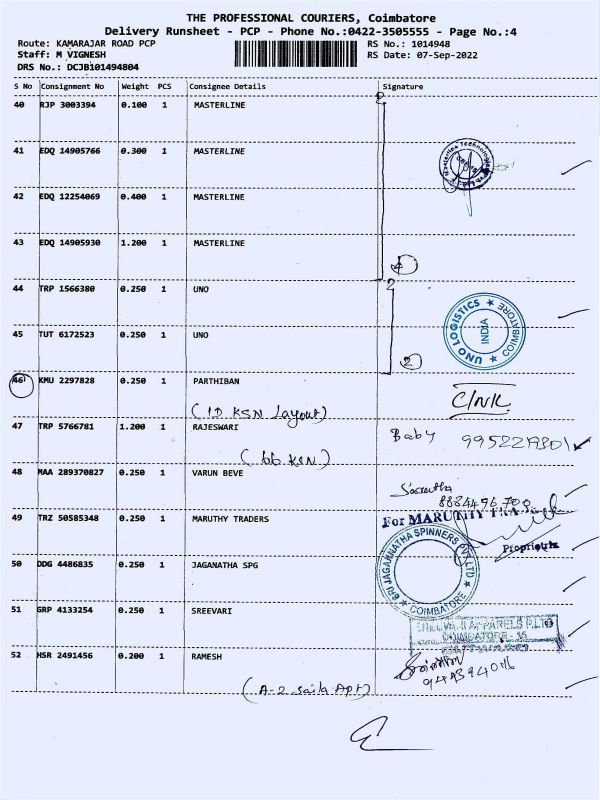 THE PROFESSIONAL COURIERS, Coimbatore
Delivery Runsheet - PCP - Phone No.:0422-3505555 - Page No.:4
Route: KAMARAJAR ROAD PCP RS No.: 1014948
Staff: M VIGNESH RS Date: 07-Sep-2022
DRS No.: DCJB101494804
S No Consignment No Weight PCS Consignee Details Signature
40 RJP 3003394 0.100 1 MASTERLINE
41 EDQ 14905766 0.300 1 MASTERLINE
42 EDQ 12254069 0.400 1 MASTERLINE
43 EDQ 14905930 1.200 1 MASTERLINE
4
44 TRP 1566380 0.250 1 UNO
UNO LOGISTICS INDIA COIMBATORE
45 TUT 6172523 0.250 1 UNO
2
46 KMU 2297828 0.250 1 PARTHIBAN
(1D KSN Layout) C/NR
47 TRP 5766781 1.200 1 RAJESWARI Baby 9952219301
(66 KSN)
48 MAA 289370827 0.250 1 VARUN BEVE
49 TRZ 50585348 0.250 1 MARUTHY TRADERS For
Proprietrix
50 DDG 4486835 0.250 1 JAGANATHA SPG
SRI JAGANNATHA SPINNERS PVT LTD COIMBATORE
51 GRP 4133254 0.250 1 SREEVARI
APPARELS P LTD
COIMBATORE - 15
52 HSR 2491456 0.200 1 RAMESH
(A-2 Saila Apt)